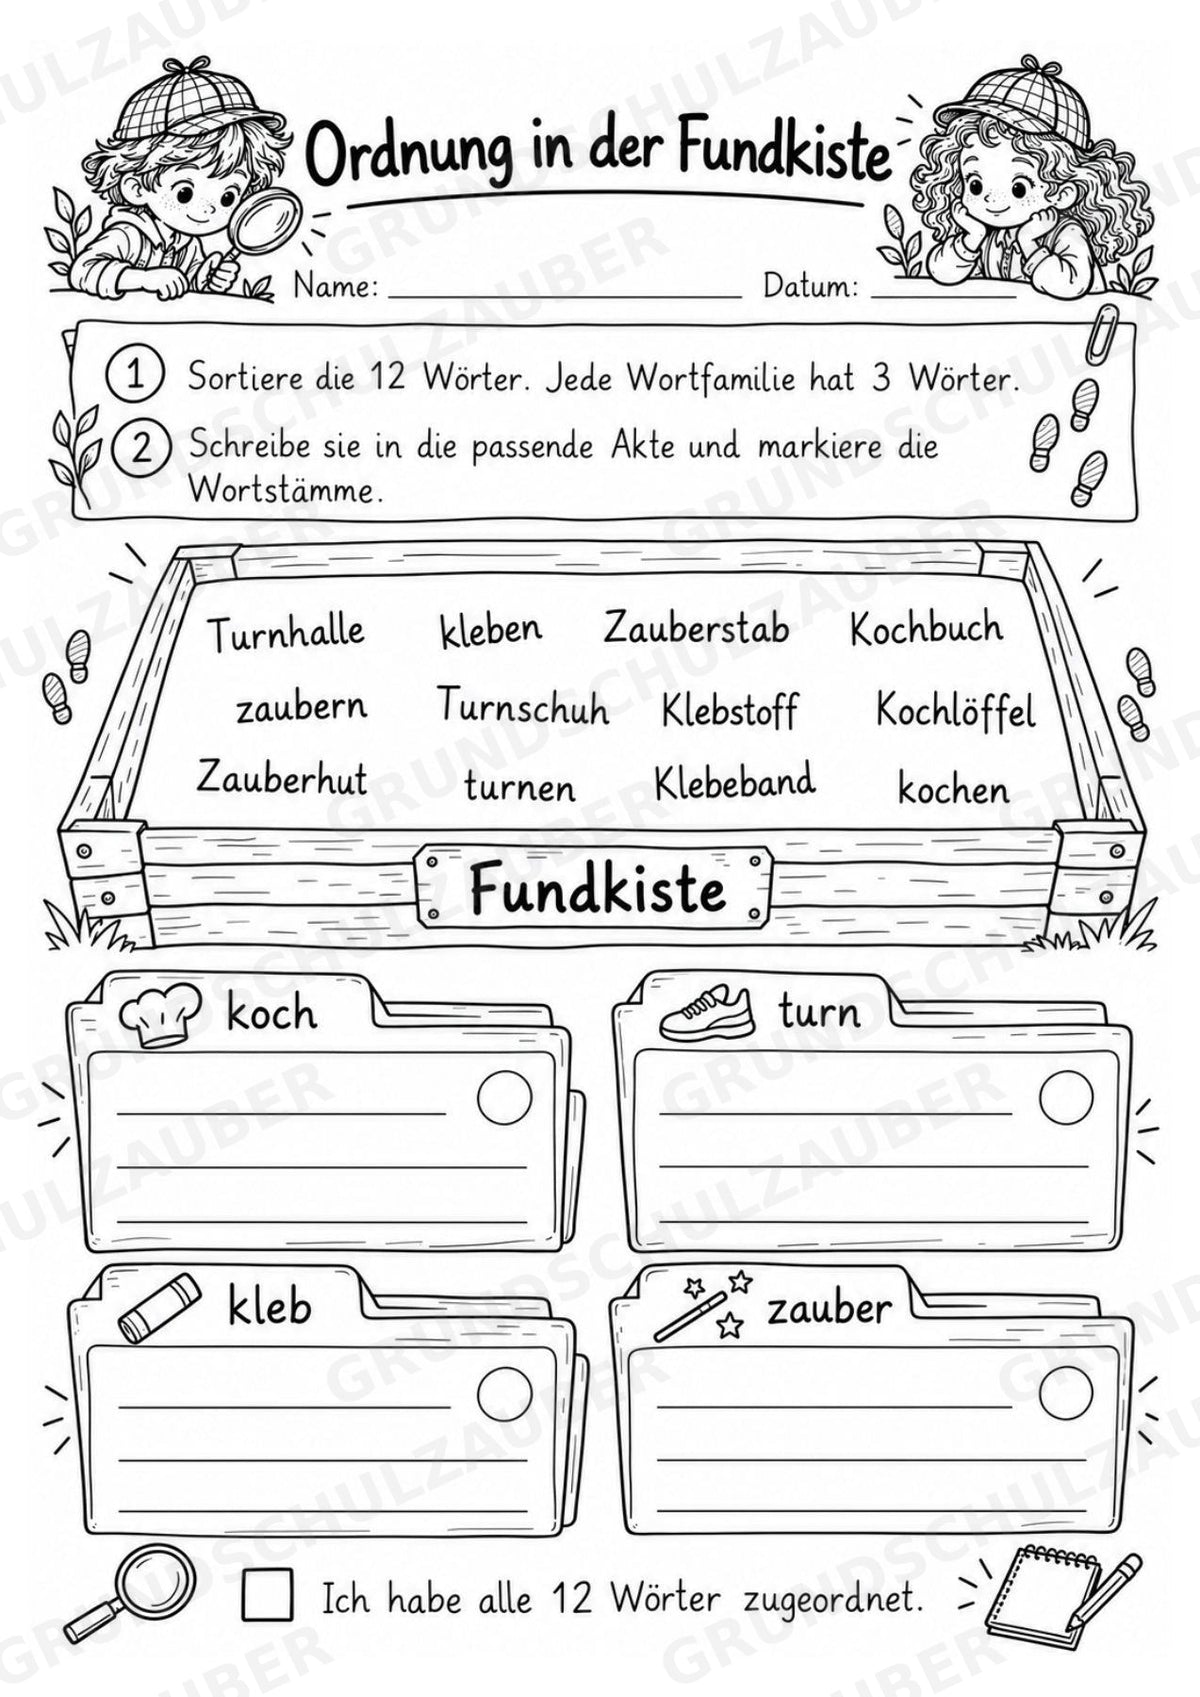 Ordnung in der Fundkiste
Name: Datum:
1 Sortiere die 12 Wörter. Jede Wortfamilie hat 3 Wörter.
2 Schreibe sie in die passende Akte und markiere die
Wortstämme.
Turnhalle kleben Zauberstab Kochbuch
zaubern Turnschuh Klebstoff Kochlöffel
Zauberhut turnen Klebeband kochen
Fundkiste
koch turn
kleb zauber
Ich habe alle 12 Wörter zugeordnet.
GRUNDSCHULZAUBER